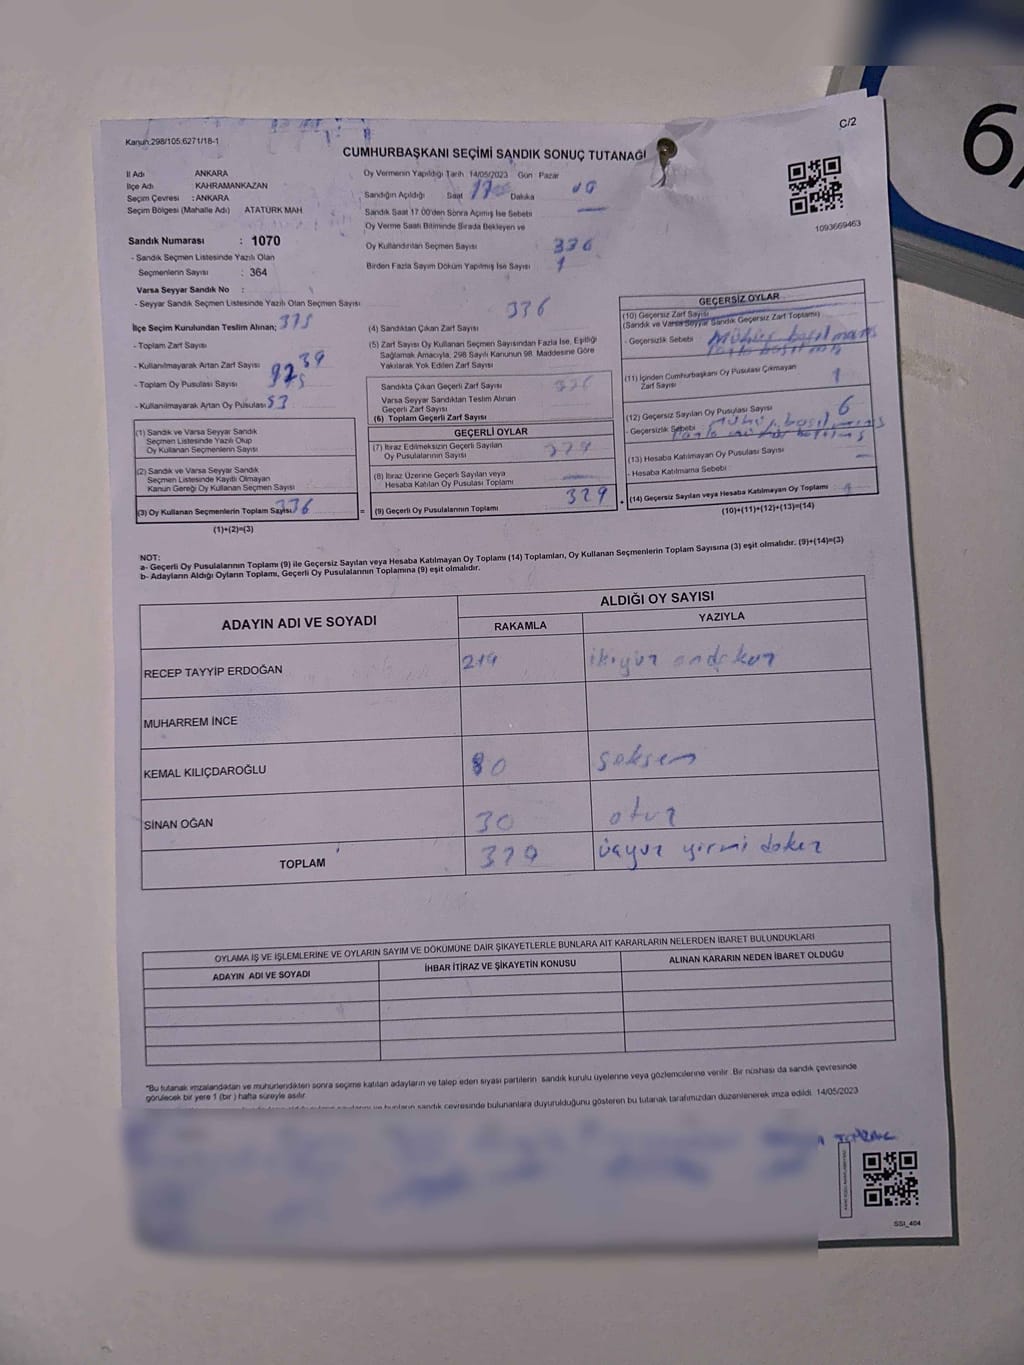 C/2
Kanun:298/105.6271/18-1
CUMHURBAŞKANI SEÇİMİ SANDIK SONUÇ TUTANAĞI
1093669463
İl Adı ANKARA
İlçe Adı KAHRAMANKAZAN
Seçim Çevresi : ANKARA
Seçim Bölgesi (Mahalle Adı) ATATÜRK MAH
Sandık Numarası : 1070
- Sandık Seçmen Listesinde Yazılı Olan
Seçmenlerin Sayısı : 364
Varsa Seyyar Sandık No :
- Seyyar Sandık Seçmen Listesinde Yazılı Olan Seçmen Sayısı
Oy Vermenin Yapıldığı Tarih 14/05/2023 Gün Pazar
Sandığın Açıldığı Saat 17 Dakika
Sandık Saat 17.00'den Sonra Açılmış İse Sebebi
Oy Verme Saati Bitiminde Sırada Bekleyen ve
Oy Kullandırılan Seçmen Sayısı 336
Birden Fazla Sayım Döküm Yapılmış İse Sayısı 1
İlçe Seçim Kurulundan Teslim Alınan; 375
- Toplam Zarf Sayısı
- Kullanılmayarak Artan Zarf Sayısı 39
- Toplam Oy Pusulası Sayısı
- Kullanılmayarak Artan Oy Pusulası 53
(1) Sandık ve Varsa Seyyar Sandık
Seçmen Listesinde Yazılı Olup
Oy Kullanan Seçmenlerin Sayısı
(2) Sandık ve Varsa Seyyar Sandık
Seçmen Listesinde Kayıtlı Olmayan
Kanun Gereği Oy Kullanan Seçmen Sayısı
(3) Oy Kullanan Seçmenlerin Toplam Sayısı 336
(1)+(2)=(3)
(4) Sandıktan Çıkan Zarf Sayısı 336
(5) Zarf Sayısı Oy Kullanan Seçmen Sayısından Fazla İse, Eşitliği
Sağlamak Amacıyla, 298 Sayılı Kanunun 98. Maddesine Göre
Yakılarak Yok Edilen Zarf Sayısı
Sandıkta Çıkan Geçerli Zarf Sayısı 336
Varsa Seyyar Sandıktan Teslim Alınan
Geçerli Zarf Sayısı
(6) Toplam Geçerli Zarf Sayısı
GEÇERLİ OYLAR
(7) İtiraz Edilmeksizin Geçerli Sayılan
Oy Pusulalarının Sayısı 329
(8) İtiraz Üzerine Geçerli Sayılan veya
Hesaba Katılan Oy Pusulası Toplamı
(9) Geçerli Oy Pusulalarının Toplamı 329
GEÇERSİZ OYLAR
(10) Geçersiz Zarf Sayısı
(Sandık ve Varsa Seyyar Sandık Geçersiz Zarf Toplamı)
- Geçersizlik Sebebi
(11) İçinden Cumhurbaşkanı Oy Pusulası Çıkmayan
Zarf Sayısı 1
(12) Geçersiz Sayılan Oy Pusulası Sayısı 6
- Geçersizlik Sebebi
(13) Hesaba Katılmayan Oy Pusulası Sayısı
- Hesaba Katılmama Sebebi
(14) Geçersiz Sayılan veya Hesaba Katılmayan Oy Toplamı
(10)+(11)+(12)+(13)=(14)
NOT:
a- Geçerli Oy Pusulalarının Toplamı (9) ile Geçersiz Sayılan veya Hesaba Katılmayan Oy Toplamı (14) Toplamları, Oy Kullanan Seçmenlerin Toplam Sayısına (3) eşit olmalıdır. (9)+(14)=(3)
b- Adayların Aldığı Oyların Toplamı, Geçerli Oy Pusulalarının Toplamına (9) eşit olmalıdır.
ADAYIN ADI VE SOYADI ALDIĞI OY SAYISI
RAKAMLA YAZIYLA
RECEP TAYYİP ERDOĞAN 219 ikiyüz ondokuz
MUHARREM İNCE
KEMAL KILIÇDAROĞLU 80 seksen
SİNAN OĞAN 30 otuz
TOPLAM 329 üçyüz yirmi dokuz
OYLAMA İŞ VE İŞLEMLERİNE VE OYLARIN SAYIM VE DÖKÜMÜNE DAİR ŞİKAYETLERLE BUNLARA AİT KARARLARIN NELERDEN İBARET BULUNDUKLARI
ADAYIN ADI VE SOYADI İHBAR İTİRAZ VE ŞİKAYETİN KONUSU ALINAN KARARIN NEDEN İBARET OLDUĞU
*Bu tutanak imzalandıktan ve mühürlendikten sonra seçime katılan adayların ve talep eden siyasi partilerin sandık kurulu üyelerine veya gözlemcilerine verilir. Bir nüshası da sandık çevresinde
görülecek bir yere 1 (bir) hafta süreyle asılır.
sandık çevresinde bulunanlara duyurulduğunu gösteren bu tutanak tarafımızdan düzenlenerek imza edildi. 14/05/2023
SSI_404
6